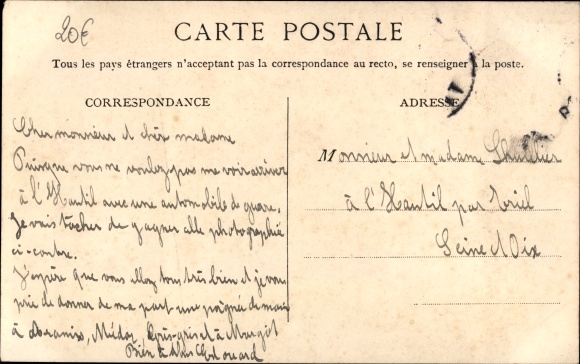 20€
CARTE POSTALE
Tous les pays étrangers n'acceptent pas la correspondance au recto, se renseigner à la poste.
CORRESPONDANCE
Cher monsieur et chère madame
Puisque vous ne voulez pas me voir arriver
à l'Hautil avec une automobile de guerre,
je vais tacher de gagner elle photographiée
ci-contre.
J'espère que vous allez tous très bien et je vous
prie de donner de ma part une poignée de main
à Médor, Gris-gris et à Margot
Bien à vous Edouard
ADRESSE
Monsieur et madame
à l'Hautil par Triel
Seine et Oix